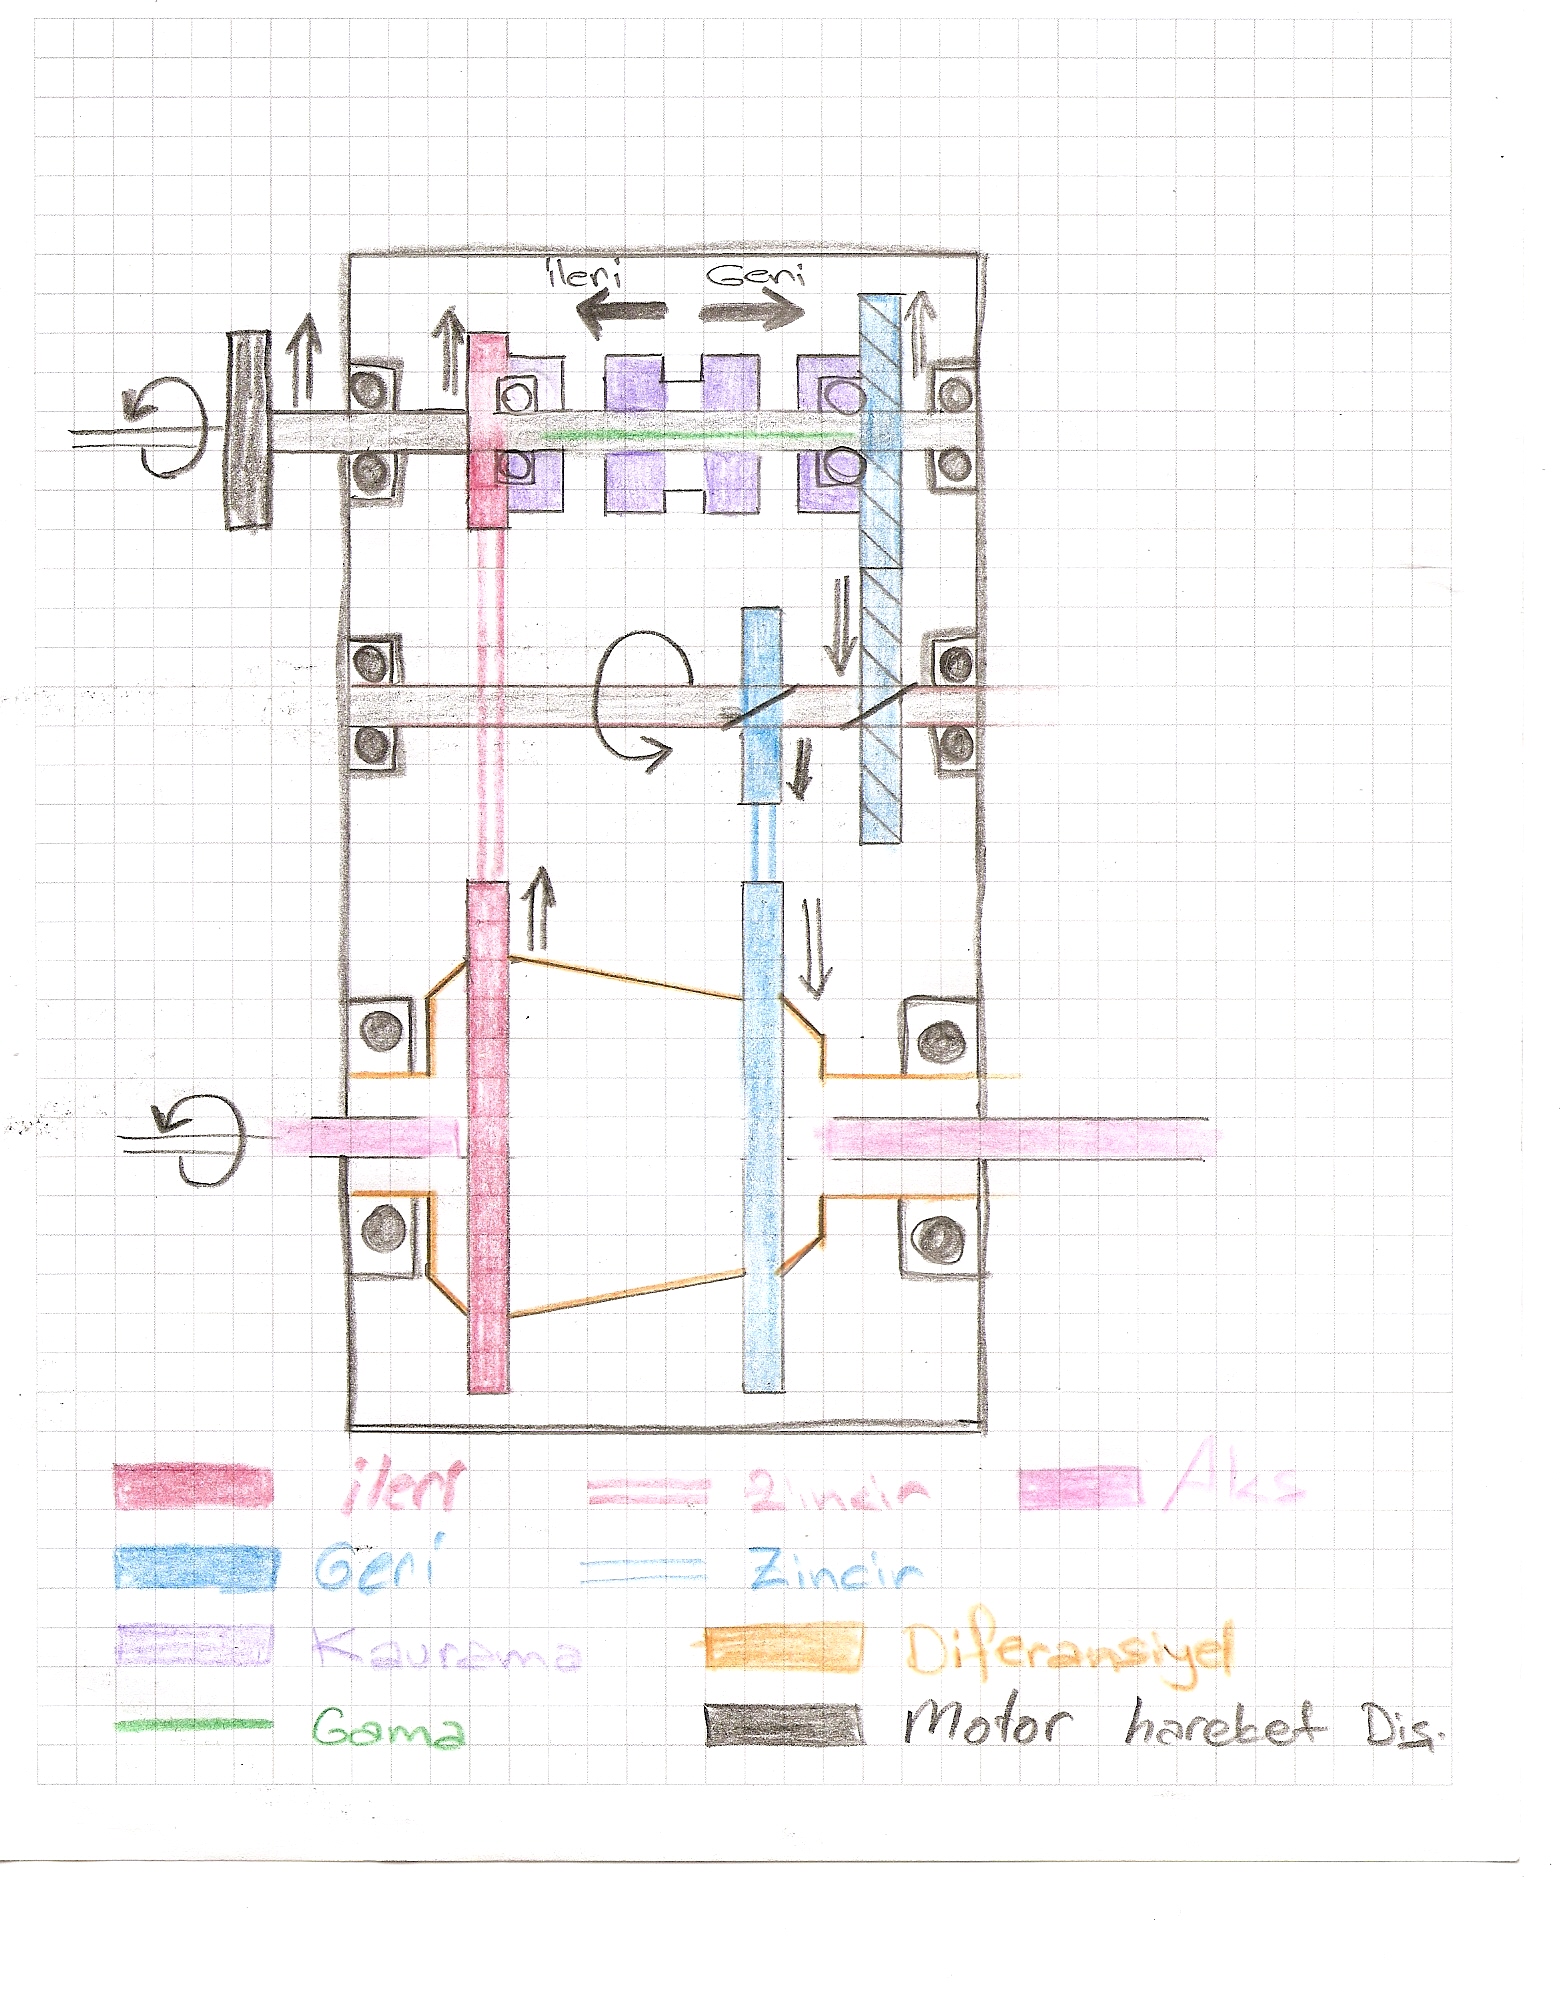 ileri Geri
ileri Zincir Aks
Geri Zincir
Kavrama Diferansiyel
Gama Motor hareket Diş.